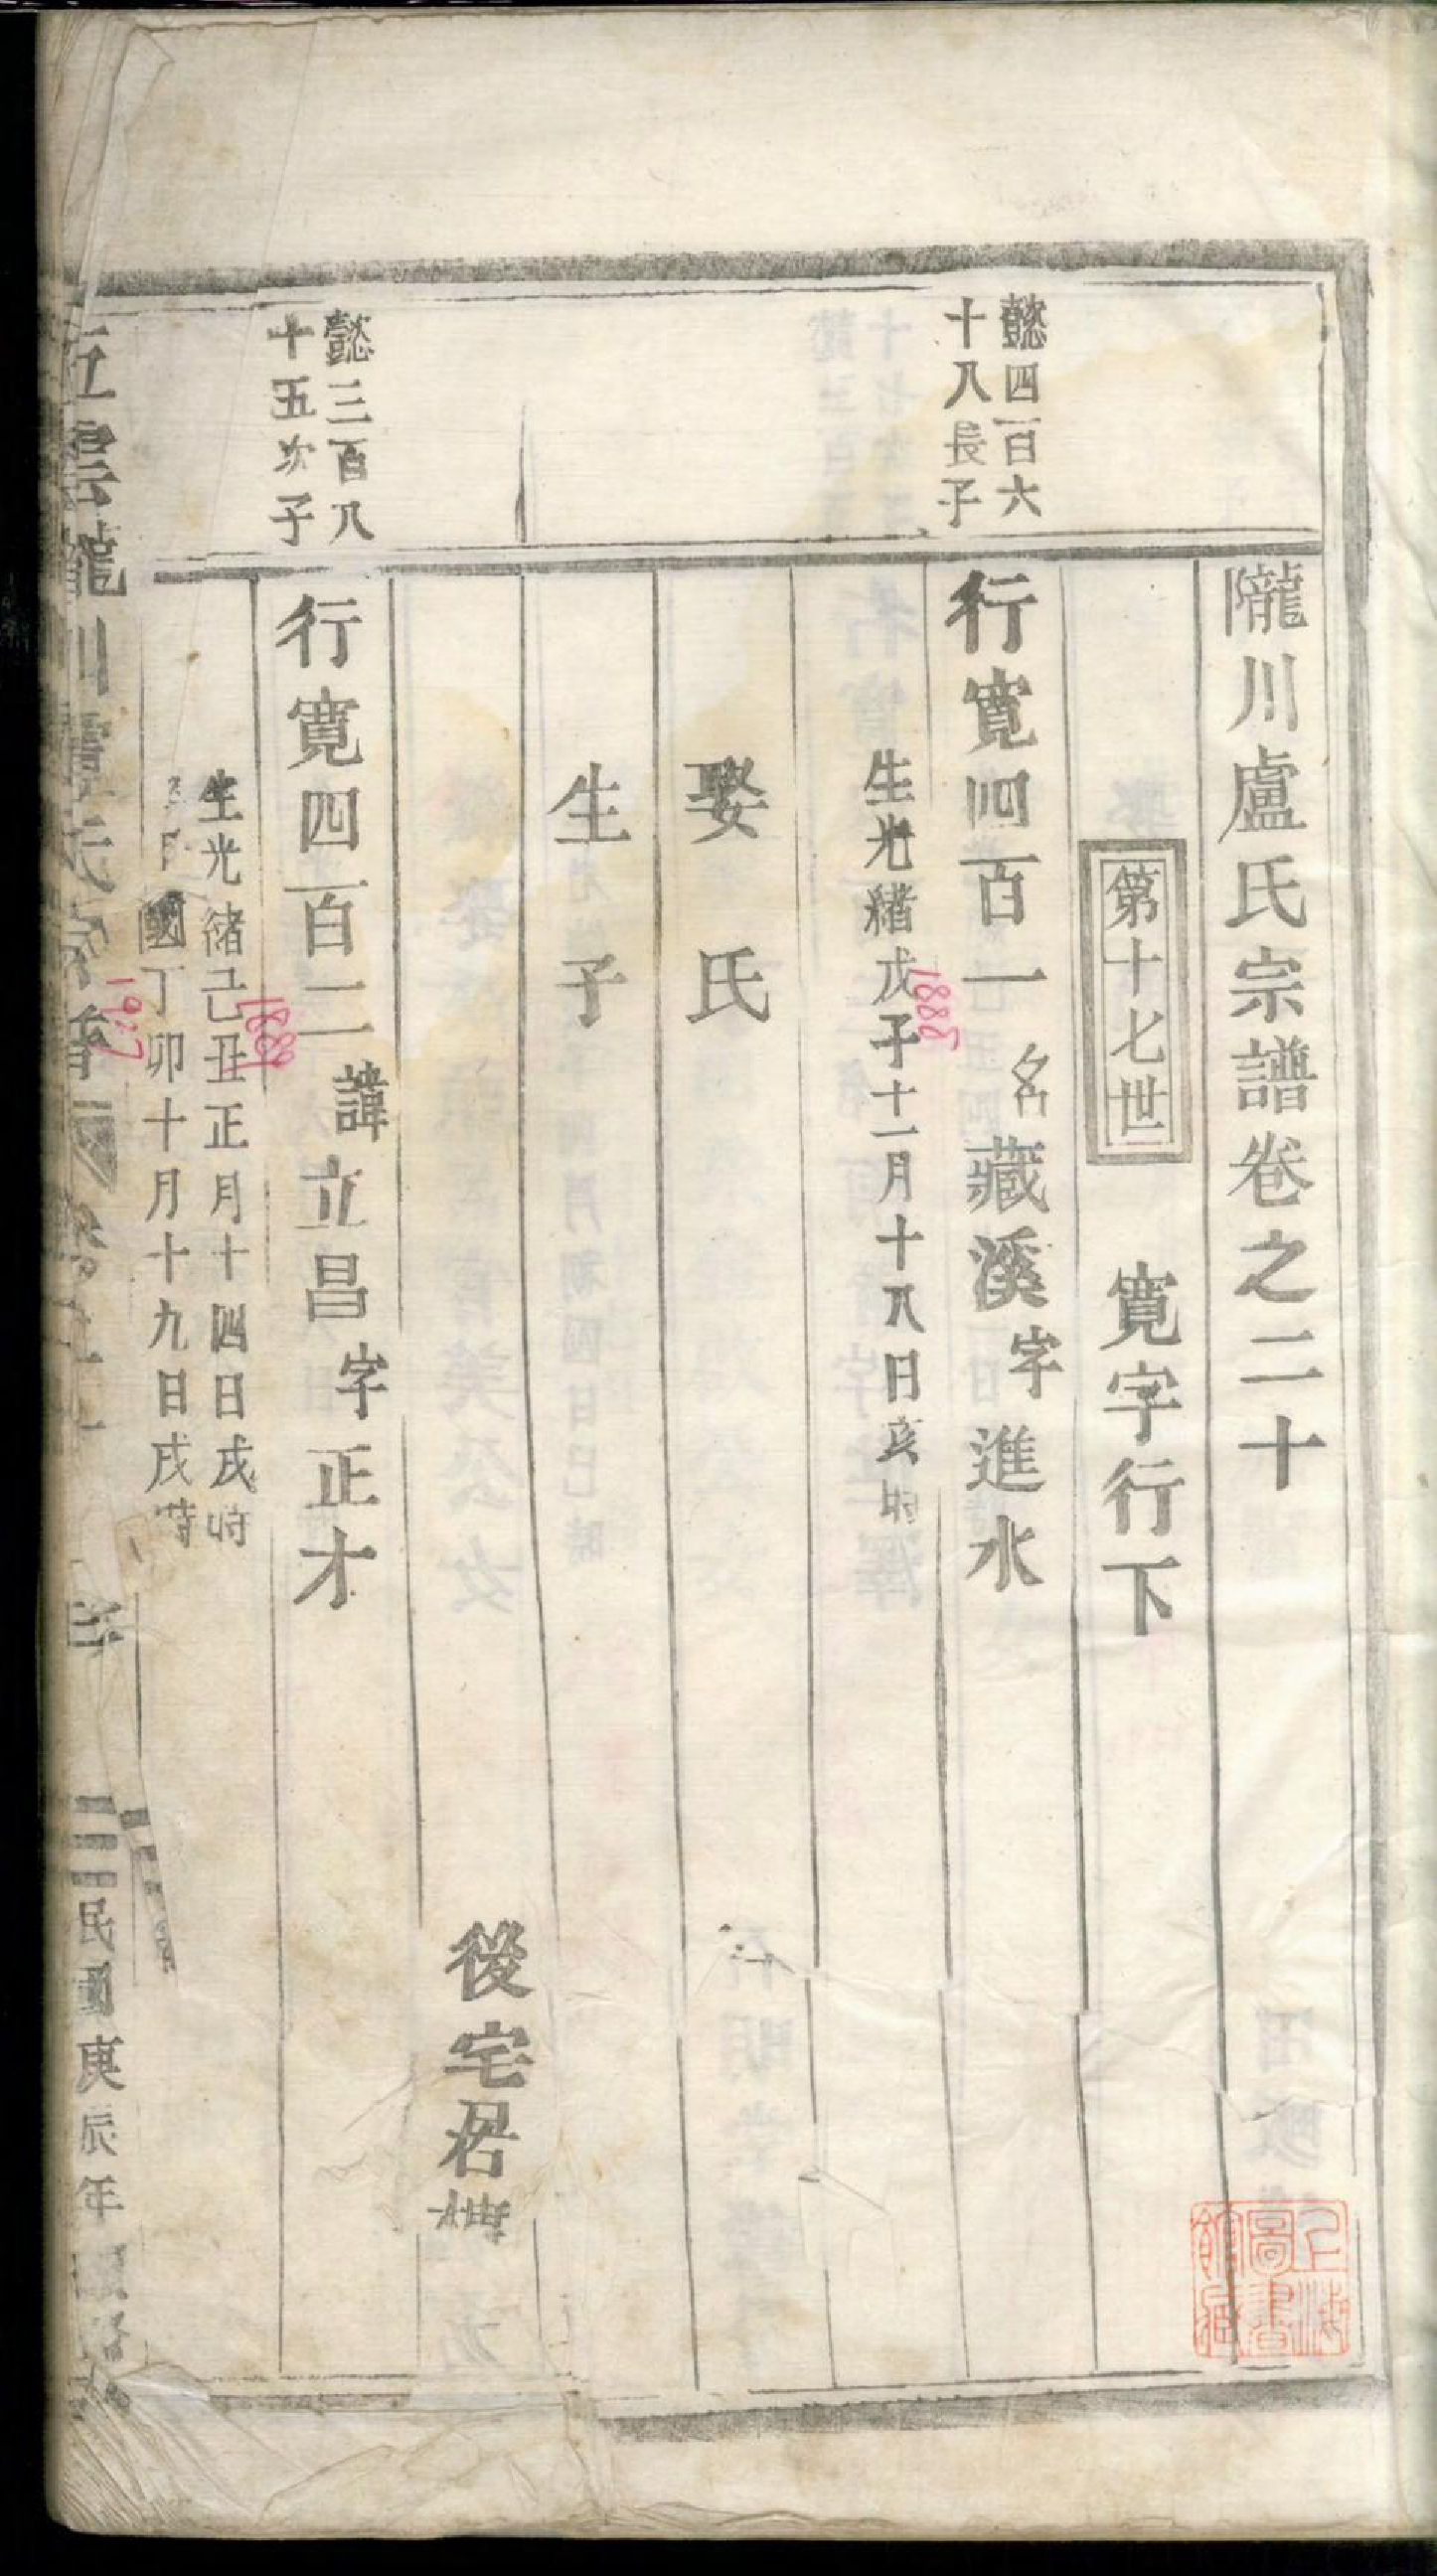 隴川盧氏宗譜卷之二十
第十七世
寬字行下
懿四百六
十八長子
行寬四百一名藏溪字進水
生光緒戊子十一月十八日亥時
1888
娶氏
生子
後宅君
懿三百八
十五次子
行寬四百二諱立昌字正才
生光緒己丑正月十四日戌時
1889
國丁卯十月十九日戌時
1927
五雲隴川盧氏宗譜
民國庚辰年
上海圖書館藏